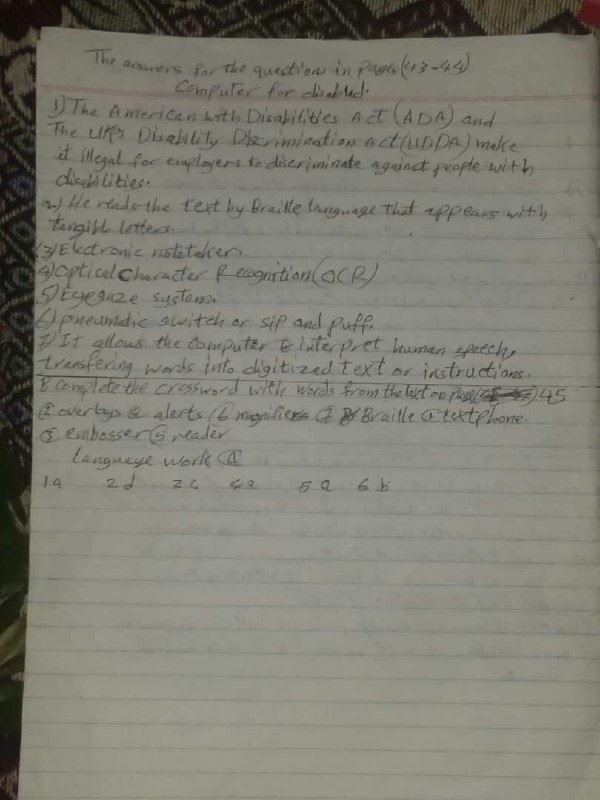 The answers for the questions in pages (43-44)
Computer for disabled.
1) The American with Disabilities Act (ADA) and
The UK's Disability Discrimination Act (UDDA) make
it illegal for employers to discriminate against people with
disabilities.
2) He reads the text by Braille language that appears with
tangible letters.
3) Electronic notetaker.
4) Optical Character Recognition (OCR)
5) Eyegaze system.
6) pneumatic switch or sip and puff.
7) It allows the computer to interpret human speech,
transfering words into digitized text or instructions.
B Complete the crossword with words from the text on 45
overlays alerts 6 magnifiers 2 Braille 1 textphone
embosser reader
Language work A
1a 2d 3c 4e 5a 6b